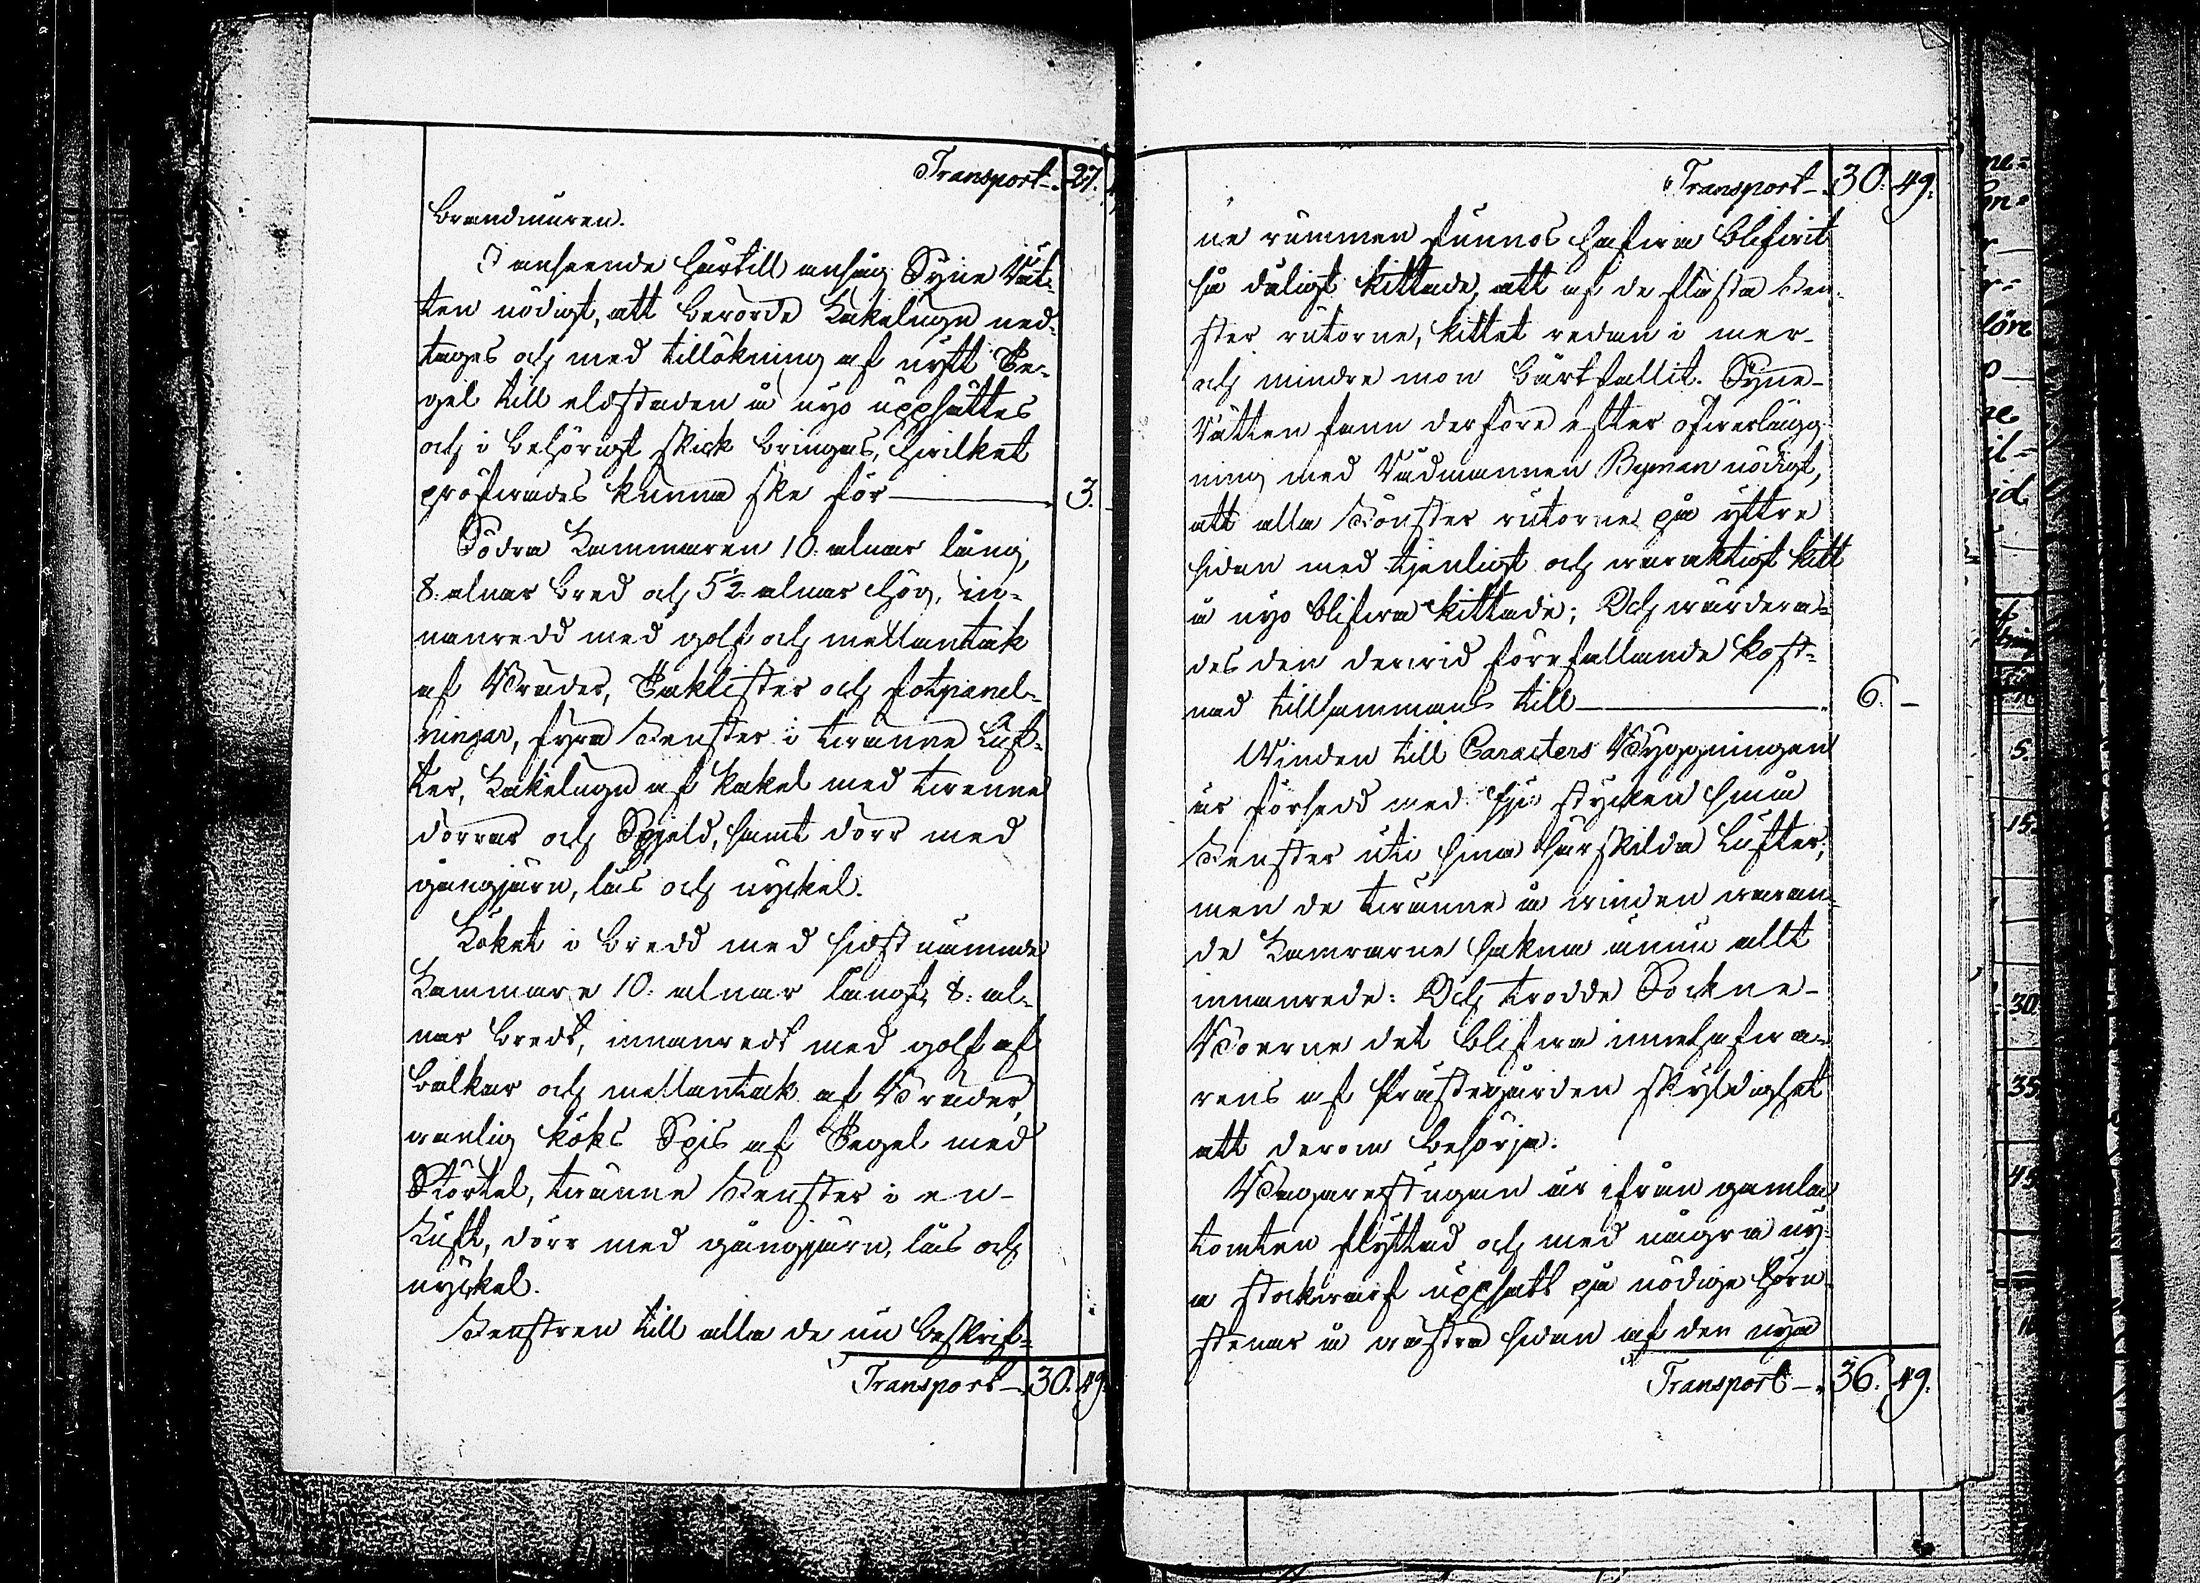 Transport — 27.
brandmuren.
I anseende härtill ansåg Syne Rät-
ten nödigt, att berörde Kakelugn ned-
tages och med tillökning af nytt Te-
gel till eldstaden å nyo uppsättes
och i behörigt skick bringas, hvilket
pröfvades kunna ske för — 3. -
Södra Kammaren 10. alnar lång,
8. alnar bred och 5½ alnar hög, in-
nanredd med golf och mellantak
af Bräder, Taklister och fotpanel-
ningar, fyra Fenster i tvänne Luf-
ter, Kakelugn af Kakel med tvenne
dörrar och Spjeld, samt dörr med
gångjärn, lås och nyckel.
Köket i bredd med sidstnämnde
Kammare 10. alnar långt, 8. al-
nar bredt, innanredt med golf af
balkar och mellantak af Bräder,
vanlig köks Spis af Tegel med
Störtel, tvänne Fenster i en
Luft, dörr med gångjärn, lås och
nyckel.
Fenstren till alla de nu beskrif-
Transport — 30. 49.
Transport — 30. 49.
ne rummen funnos hafva blifvit
så dåligt kittade, att af de flästa Fen-
ster rutorne, kittet redan i mer-
och mindre mon bårtfallit. Syne-
Rätten fann derföre efter öfverlägg-
ning med Nämdmannen Byman nödigt,
att alla Fönster rutorne på yttre
sidan med tjenligt och varaktigt kitt
å nyo blifva kittade; Och värdera-
des den dervid förefallande kost-
nad tillsammans till — 6. -
Vinden till Caracters Byggningen
är försedd med sju stycken små
Fenster uti sina särskilda Lufter;
men de tvänne å vinden varan-
de Kamrarne sakna ännu allt
innanrede: Och trodde Sockne-
Boerne det blifva innehafva-
rens af Prästegården skyldighet
att derom besörja.
Bagarestugan är ifrån gamla
tomten flyttad och med några ny-
a stockvarf uppsatt på nödige hörn-
stenar å västra sidan af den nya
Transport — 36. 49.